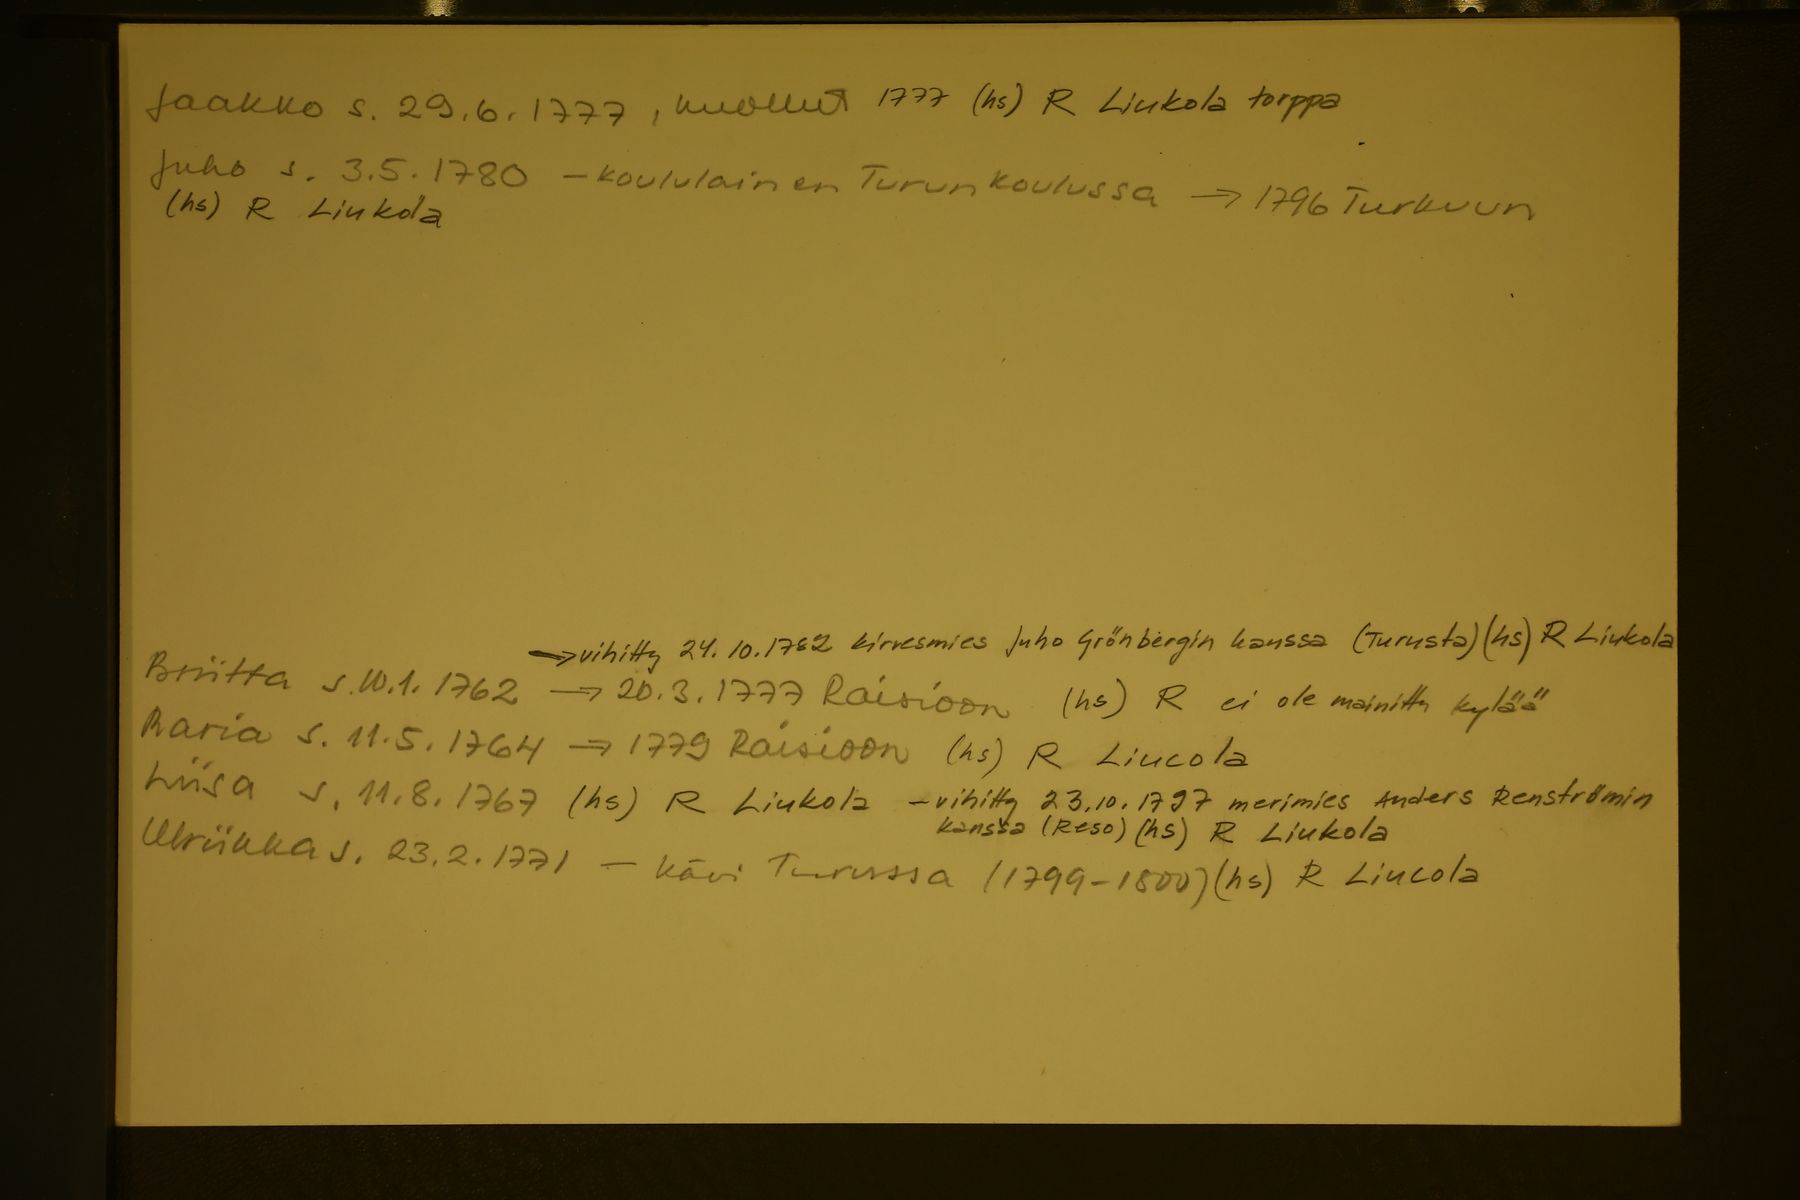 Jaakko s. 29.6.1777, kuollut 1777 (hs) R Liukola torppa
Juho s. 3.5.1780 – koululainen Turun koulussa → 1796 Turkuun
(hs) R Liukola
→ vihitty 24.10.1782 kirvesmies Juho Grönbergin kanssa (Turusta) (hs) R Liukola
Briitta s. 10.1.1762 → 20.3.1777 Raisioon (hs) R ei ole mainittu kylää
Maria s. 11.5.1764 → 1779 Raisioon (hs) R Liucola
Liisa s. 11.8.1767 (hs) R Liukola – vihitty 23.10.1797 merimies Anders Renströmin
kanssa (Reso) (hs) R Liukola
Ulriikka s. 23.2.1771 – kävi Turussa (1799-1800) (hs) R Liucola